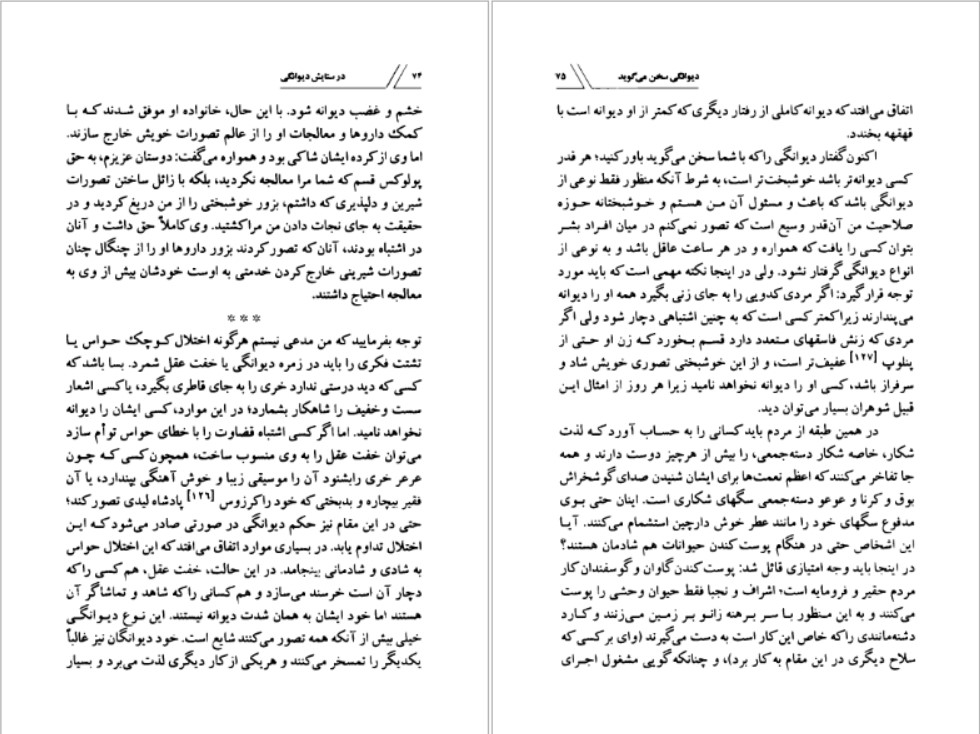 ۷۴ در ستایش دیوانگی
خشم و غضب دیوانه شود. با این حال، خانواده او موفق شدند که با
کمک داروها و معالجات او را از عالم تصورات خویش خارج سازند.
اما وی از کرده ایشان شاکی بود و همواره می‌گفت: دوستان عزیزم، به حق
پولوکس قسم که شما مرا معالجه نکردید، بلکه با زائل ساختن تصورات
شیرین و دلپذیری که داشتم، بزور خوشبختی را از من دریغ کردید و در
حقیقت به جای نجات دادن من مرا کشتید. وی کاملاً حق داشت و آنان
در اشتباه بودند، آنان که تصور کردند بزور داروها او را از چنگال چنان
تصورات شیرینی خارج کردن خدمتی به اوست خودشان بیش از وی به
معالجه احتیاج داشتند.
***
توجه بفرمایید که من مدعی نیستم هرگونه اختلال کوچک حواس یا
تشتت فکری را باید در زمره دیوانگی یا خفت عقل شمرد. بسا باشد که
کسی که دید درستی ندارد خری را به جای قاطری بگیرد، یا کسی اشعار
سست و خفیف را شاهکار بشمارد؛ در این موارد، کسی ایشان را دیوانه
نخواهد نامید. اما اگر کسی اشتباه قضاوت را با خطای حواس توأم سازد
می‌توان خفت عقل را به وی منسوب ساخت، همچون کسی که چون
عرعر خری را بشنود آن را موسیقی زیبا و خوش آهنگی بپندارد، یا آن
فقیر بیچاره و بدبختی که خود را کرزوس [۱۲۶] پادشاه لیدی تصور کند؛
حتی در این مقام نیز حکم دیوانگی در صورتی صادر می‌شود که این
اختلال تداوم یابد. در بسیاری موارد اتفاق می‌افتد که این اختلال حواس
به شادی و شادمانی بینجامد. در این حالت، خفت عقل، هم کسی را که
دچار آن است خرسند می‌سازد و هم کسانی را که شاهد و تماشاگر آن
هستند اما خود ایشان به همان شدت دیوانه نیستند. این نوع دیوانگی
خیلی بیش از آنکه همه تصور می‌کنند شایع است. خود دیوانگان نیز غالباً
یکدیگر را تمسخر می‌کنند و هریکی از کار دیگری لذت می‌برد و بسیار
دیوانگی سخن می‌گوید ۷۵
اتفاق می‌افتد که دیوانه کاملی از رفتار دیگری که کمتر از او دیوانه است با
قهقهه بخندد.
اکنون گفتار دیوانگی را که با شما سخن می‌گوید باور کنید؛ هر قدر
کسی دیوانه‌تر باشد خوشبخت‌تر است، به شرط آنکه منظور فقط نوعی از
دیوانگی باشد که باعث و مسئول آن من هستم و خوشبختانه حوزه
صلاحیت من آن‌قدر وسیع است که تصور نمی‌کنم در میان افراد بشر
بتوان کسی را یافت که همواره و در هر ساعت عاقل باشد و به نوعی از
انواع دیوانگی گرفتار نشود. ولی در اینجا نکته مهمی است که باید مورد
توجه قرار گیرد: اگر مردی کدویی را به جای زنی بگیرد همه او را دیوانه
می‌پندارند زیرا کمتر کسی است که به چنین اشتباهی دچار شود ولی اگر
مردی که زنش فاسقهای متعدد دارد قسم بخورد که زن او حتی از
پنلوپ [۱۲۷] عفیف‌تر است، و از این خوشبختی تصوری خویش شاد و
سرفراز باشد، کسی او را دیوانه نخواهد نامید زیرا هر روز از امثال این
قبیل شوهران بسیار می‌توان دید.
در همین طبقه از مردم باید کسانی را به حساب آورد که لذت
شکار، خاصه شکار دسته‌جمعی، را بیش از هرچیز دوست دارند و همه
جا تفاخر می‌کنند که اعظم نعمت‌ها برای ایشان شنیدن صدای گوشخراش
بوق و کرنا و عوعو دسته‌جمعی سگهای شکاری است. اینان حتی بوی
مدفوع سگهای خود را مانند عطر خوش دارچین استشمام می‌کنند. آیا
این اشخاص حتی در هنگام پوست کندن حیوانات هم شادمان هستند؟
در اینجا باید وجه امتیازی قائل شد: پوست کندن گاوان و گوسفندان کار
مردم حقیر و فرومایه است؛ اشراف و نجبا فقط حیوان وحشی را پوست
می‌کنند و به این منظور با سر برهنه زانو بر زمین می‌زنند و کارد
دشنه‌مانندی را که خاص این کار است به دست می‌گیرند (وای بر کسی که
سلاح دیگری در این مقام به کار برد)، و چنانکه گویی مشغول اجرای